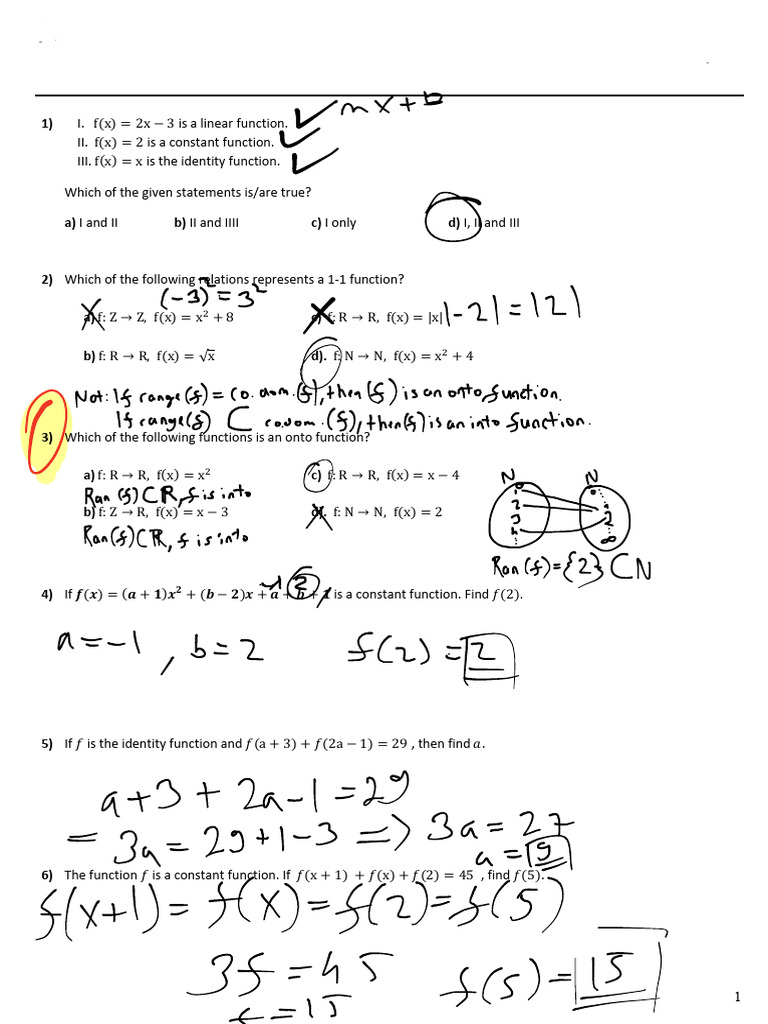 mx+b
1) I. f(x) = 2x − 3 is a linear function.
II. f(x) = 2 is a constant function.
III. f(x) = x is the identity function.
Which of the given statements is/are true?
a) I and II b) II and IIII c) I only d) I, II and III
2) Which of the following relations represents a 1-1 function?
(-3)² = 3²
a) f: Z → Z, f(x) = x² + 8 c) f: R → R, f(x) = |x| |-2| = |2|
b) f: R → R, f(x) = √x d). f: N → N, f(x) = x² + 4
Not: If range(f) = co. dom. (f), then (f) is an onto function.
If range(f) ⊂ co.dom. (f), then (f) is an into function.
3) Which of the following functions is an onto function?
a) f: R → R, f(x) = x² c) f: R → R, f(x) = x − 4 N N
Ran (f) ⊂ R, f is into
b) f: Z → R, f(x) = x − 3 d). f: N → N, f(x) = 2
Ran(f) ⊂ R, f is into
Ran (f) = {2} ⊂ N
-1 2
4) If f(x) = (a + 1)x² + (b − 2)x + a + b + 1 is a constant function. Find f(2).
a = -1, b = 2 f(2) = 2
5) If f is the identity function and f(a + 3) + f(2a − 1) = 29 , then find a.
a+3 + 2a-1 = 29
= 3a = 29+1-3 => 3a = 27
a = 9
6) The function f is a constant function. If f(x + 1) + f(x) + f(2) = 45 , find f(5).
f(x+1) = f(x) = f(2) = f(5)
3f = 45 f(5) = 15
f = 15
1